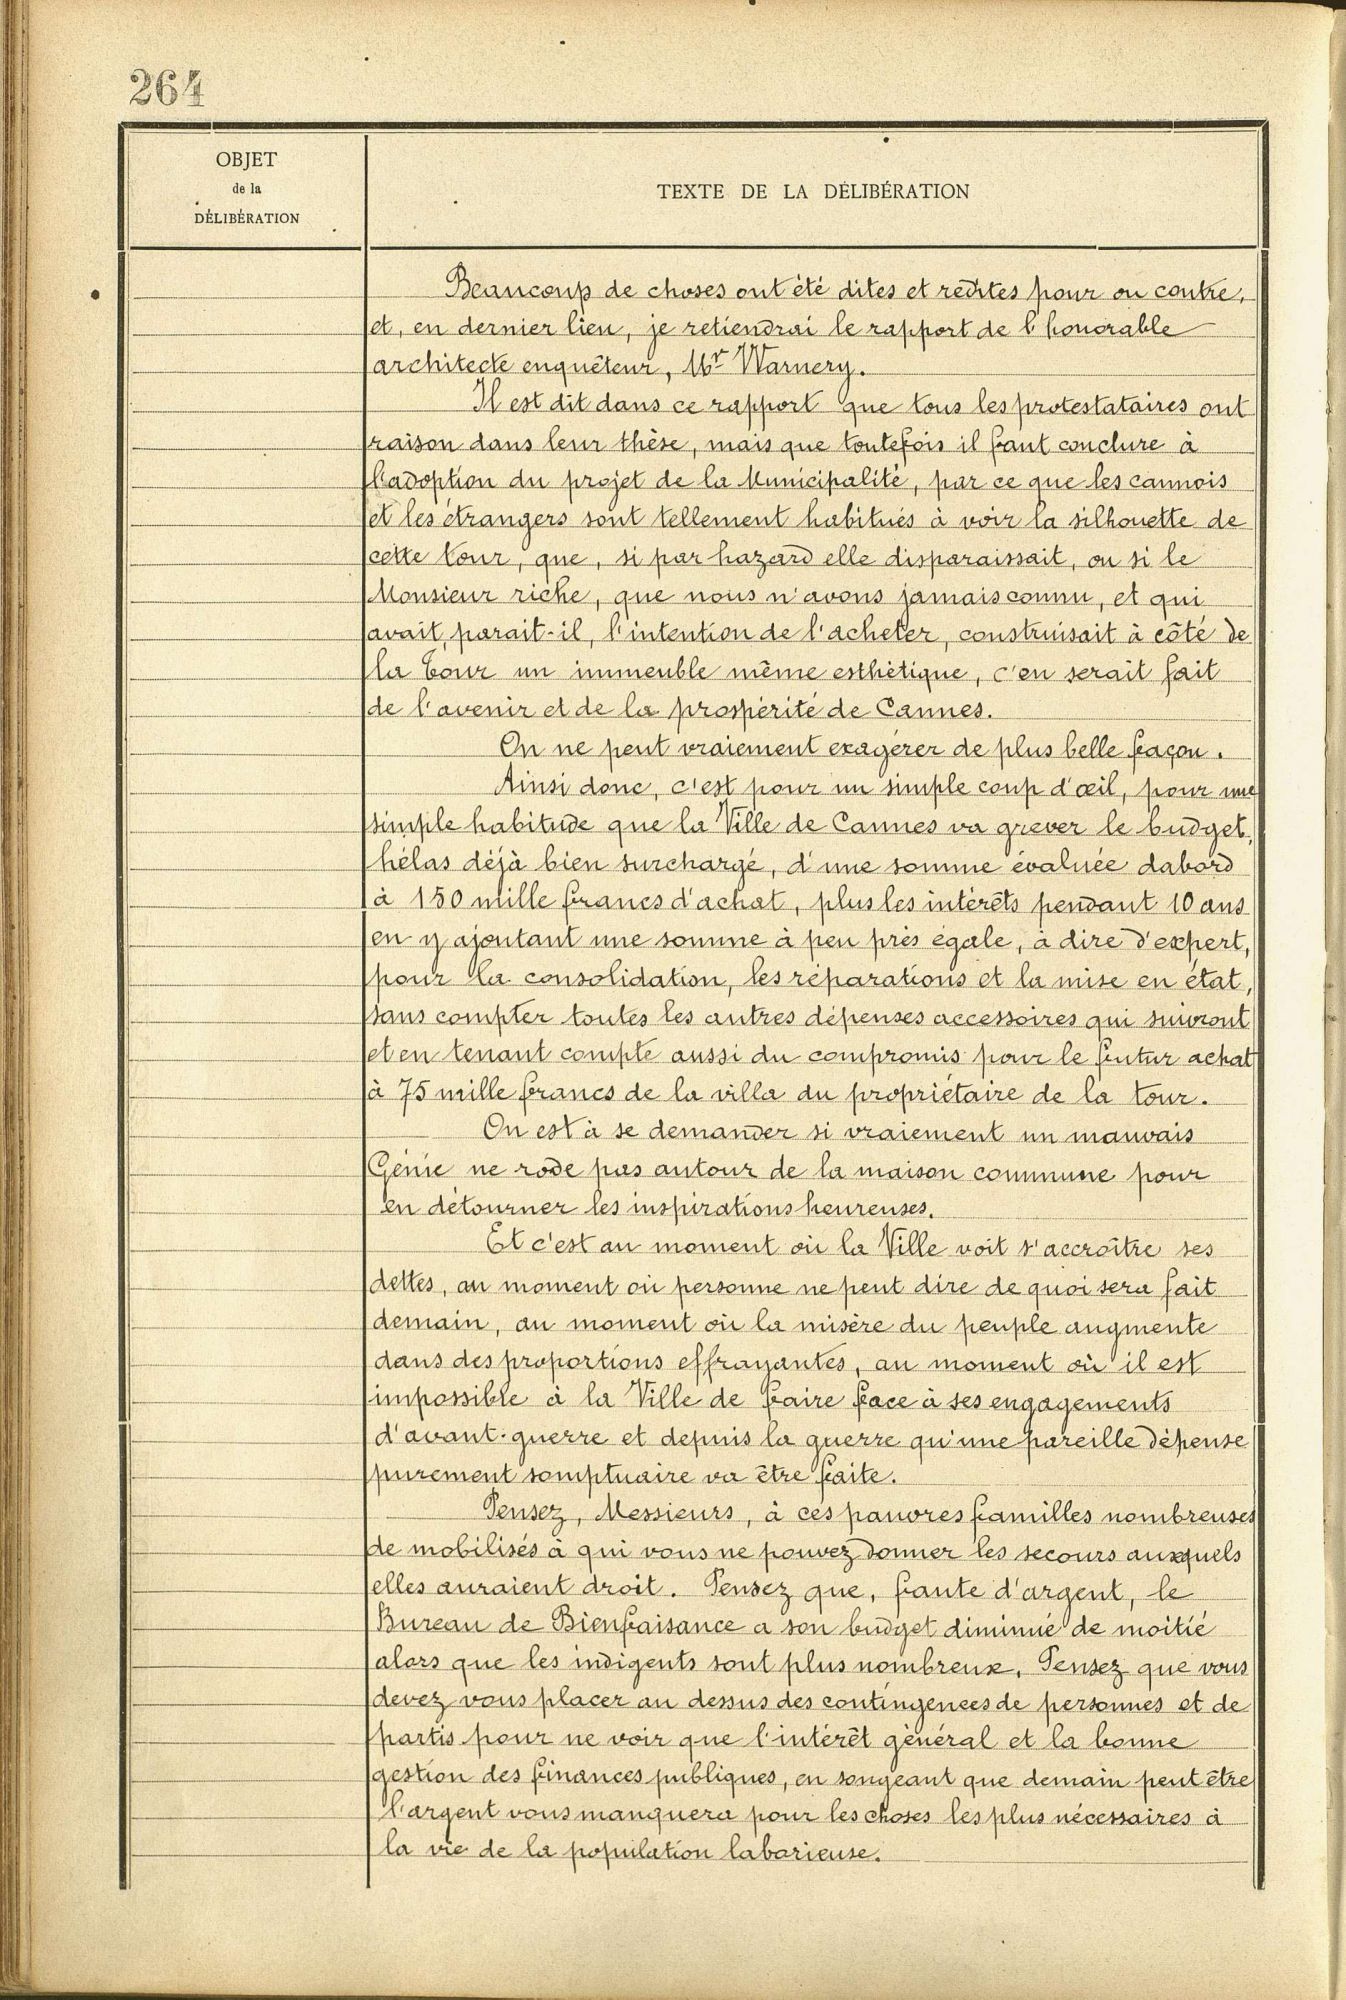 264
OBJET
de la
DÉLIBÉRATION
TEXTE DE LA DÉLIBÉRATION
Beaucoup de choses ont été dites et redites pour ou contre,
et, en dernier lieu, je retiendrai le rapport de l'honorable
architecte enquêteur, Mr Warnery.
Il est dit dans ce rapport que tous les protestataires ont
raison dans leur thèse, mais que toutefois il faut conclure à
l'adoption du projet de la Municipalité, par ce que les cannois
et les étrangers sont tellement habitués à voir la silhouette de
cette tour, que, si par hazard elle disparaissait, ou si le
Monsieur riche, que nous n'avons jamais connu, et qui
avait, parait-il, l'intention de l'acheter, construisait à côté de
la Tour un immeuble même esthétique, c'en serait fait
de l'avenir et de la prospérité de Cannes.
On ne peut vraiement exagérer de plus belle façon.
Ainsi donc, c'est pour un simple coup d'œil, pour une
simple habitude que la Ville de Cannes va grever le budget,
hélas déjà bien surchargé, d'une somme évaluée dabord
à 150 mille francs d'achat, plus les intérêts pendant 10 ans
en y ajoutant une somme à peu près égale, à dire d'expert,
pour la consolidation, les réparations et la mise en état,
sans compter toutes les autres dépenses accessoires qui suivront
et en tenant compte aussi du compromis pour le futur achat
à 75 mille francs de la villa du propriétaire de la tour.
On est à se demander si vraiement un mauvais
Génie ne rode pas autour de la maison commune pour
en détourner les inspirations heureuses.
Et c'est au moment où la Ville voit s'accroître ses
dettes, au moment où personne ne peut dire de quoi sera fait
demain, au moment où la misère du peuple augmente
dans des proportions effrayantes, au moment où il est
impossible à la Ville de faire face à ses engagements
d'avant-guerre et depuis la guerre qu'une pareille dépense
purement somptuaire va être faite.
Pensez, Messieurs, à ces pauvres familles nombreuses
de mobilisés à qui vous ne pouvez donner les secours auxquels
elles auraient droit. Pensez que, faute d'argent, le
Bureau de Bienfaisance a son budget diminué de moitié
alors que les indigents sont plus nombreux. Pensez que vous
devez vous placer au dessus des contingences de personnes et de
partis pour ne voir que l'intérêt général et la bonne
gestion des finances publiques, en songeant que demain peut être
l'argent vous manquera pour les choses les plus nécessaires à
la vie de la population laborieuse.